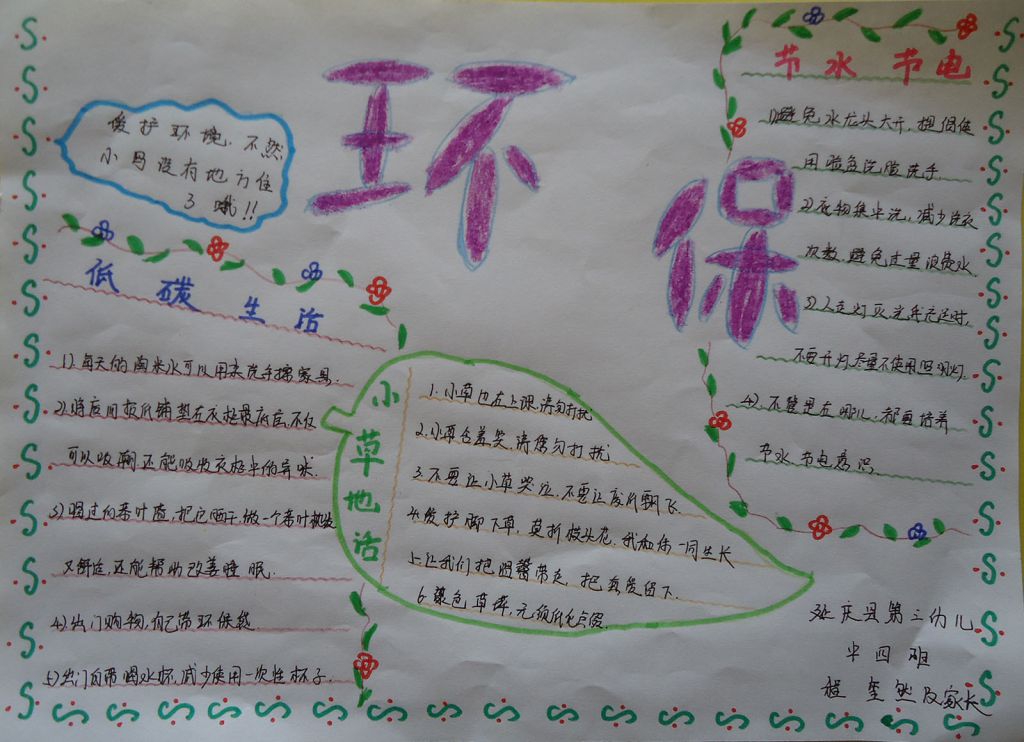 环保
爱护环境，不然
小鸟没有地方住
了哦！！
低碳生活
1）.每天的淘米水可以用来洗手擦家具.
2）.将废旧报纸铺垫在衣柜最底层，不仅
可以吸潮还能吸收衣柜中的异味.
3）喝过的茶叶渣，把它晒干，做一个茶叶枕头
又舒适，还能帮助改善睡眠.
4）出门购物，自己带环保袋
5）出门自带喝水杯，减少使用一次性杯子.
小草的话
1.小草也在上课，请勿打扰
2.小草含羞笑，请您勿打扰
3.不要让小草哭泣，不要让废纸飘飞.
4.爱护脚下草，莫折枝头花，我和你一同生长
5.让我们把回馨带走，把春贵留下.
6.绿色草坪，无须纸屑点缀.
节水节电
1）避免水龙头大开，提倡使
用脸盆洗脸洗手.
2）衣物集中洗，减少洗衣
次数，避免过量浪费水.
3）人走灯灭，光线充足时，
不要开灯，尽量不使用照明灯.
4）.不管是在哪儿，都要培养
节水节电意识
延庆县第三幼儿
中四班
程奎然及家长